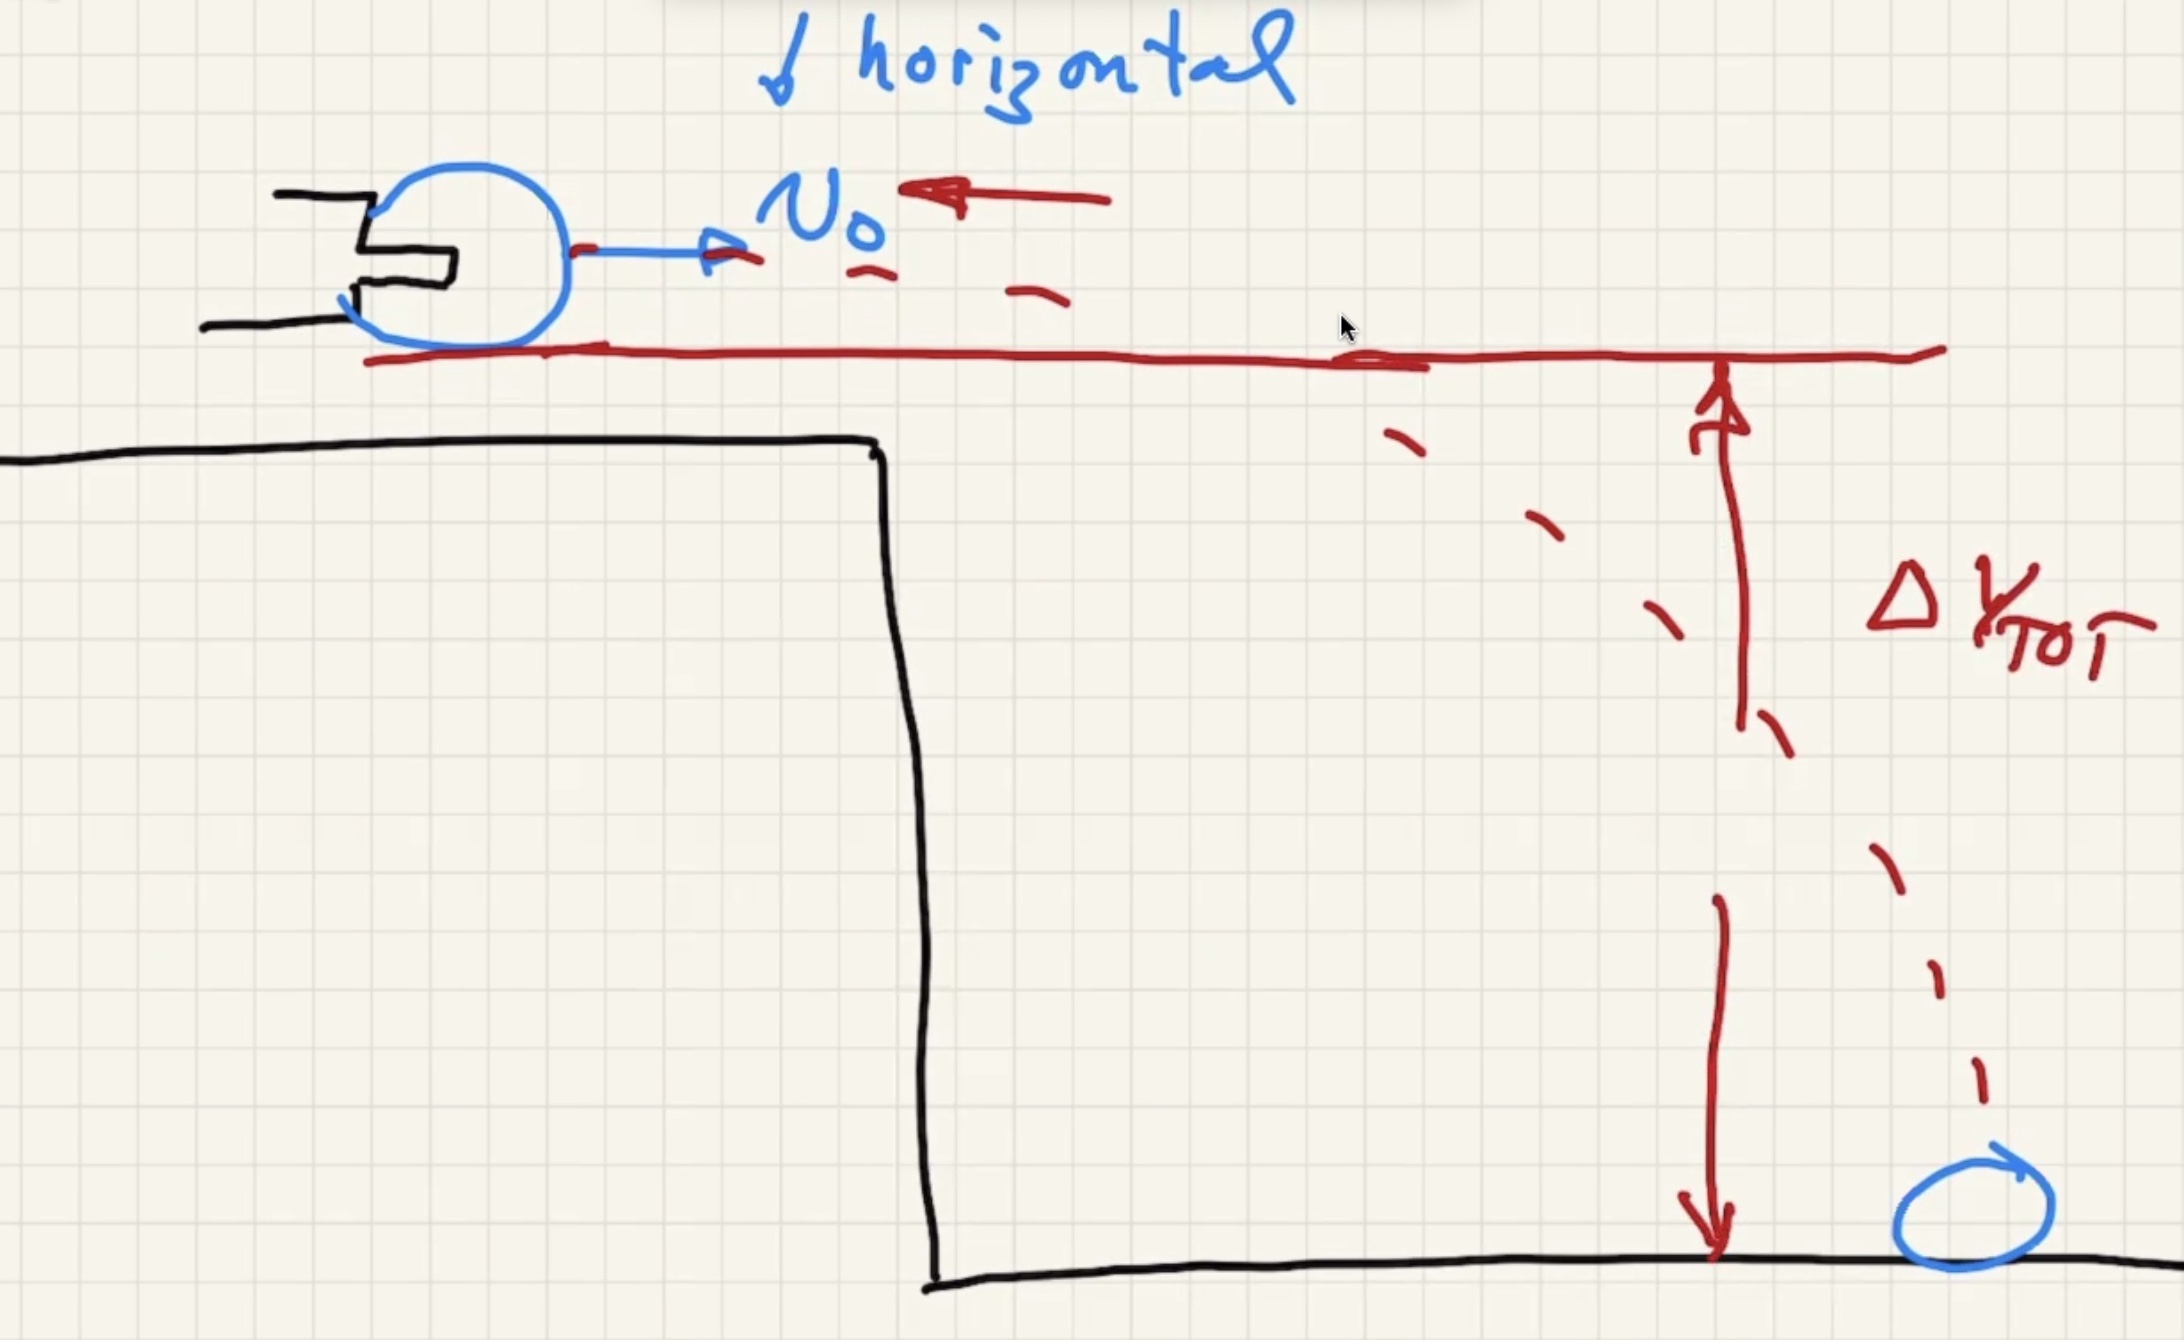 horizontal
v₀
Δy_TOT